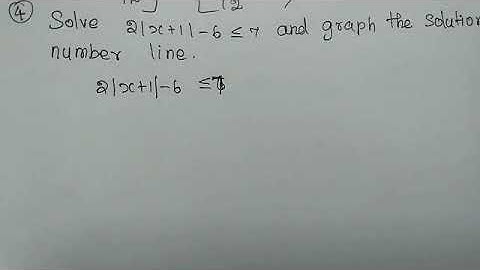 ④ Solve 2|x+1|-6 ≤ 7 and graph the solution
number line.
2|x+1|-6 ≤